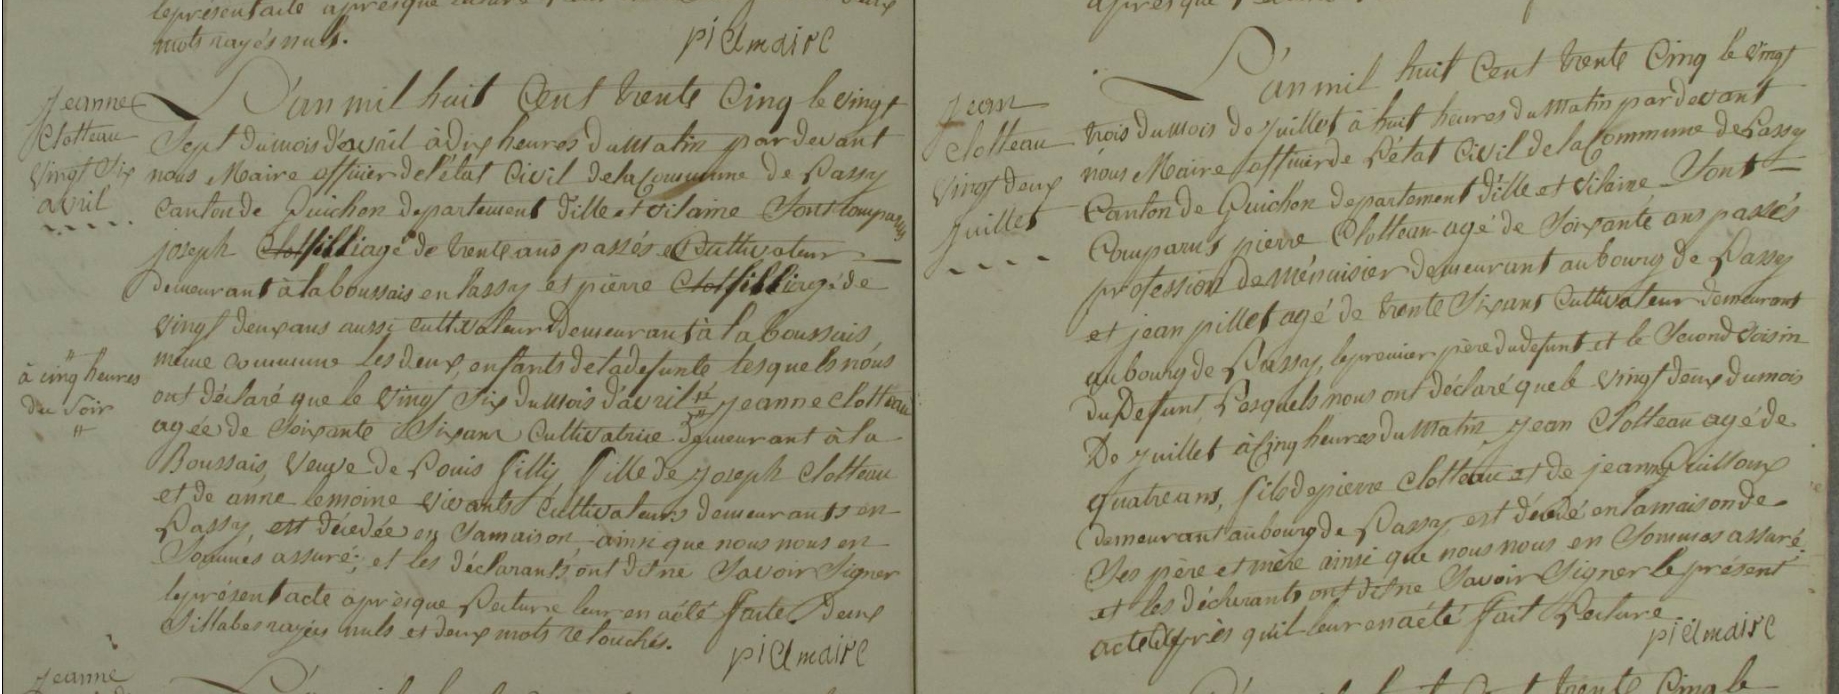 le présent acte après que lecture
mots rayés nuls.
piel maire
Jeanne
Clolteau
vingt Six
avril
L'an mil huit Cent trente Cinq le vingt
Sept du mois d'avril à dix heures du matin par devant
nous Maire officier de l'état Civil de la Commune de Passay
canton de Guichen departement d'ille et vilaine Sont comparus
joseph Clot filli agé de trente ans passés Cultivateur
demeurant à la boussais en Passay et pierre Clot filli agé de
vingt deux ans aussi cultivateur demeurant à la boussais
même commune les deux enfants de la defunte lesquels nous
à cinq heures
du Soir
ont déclaré que le vingt Six du mois d'avril Jeanne Clolteau
agée de Soixante Six ans Cultivatrice demeurant à la
Boussais, veuve de Louis filly, fille de Joseph Clolteau
et de anne lemoine vivants Cultivateurs demeurants en
Passay, est décédée en Sa maison ainsi que nous nous en
Sommes assuré; et les déclarants ont dit ne Savoir Signer
le présent acte après que Lecture leur en a été faite. Deux
Sillabes rayées nuls et deux mots retouchés.
piel maire
Jeanne
après que
Jean
Clolteau
vingt deux
Juillet
L'an mil huit Cent trente Cinq le vingt
trois du mois de Juillet à huit heures du matin par devant
nous Maire officier de l'état Civil de la Commune de Passay
Canton de Guichen departement d'ille et vilaine Sont
Comparus pierre Clolteau agé de Soixante ans passés
profession de ménuisier demeurant au bourg de Passay
et jean pillet agé de trente Six ans Cultivateur demeurant
au bourg de Passay, le premier père du defunt et le Second voisin
du Defunt, Lesquels nous ont déclaré que le vingt deux du mois
De Juillet à Cinq heures du matin Jean Clolteau agé de
quatre ans, fils de pierre Clolteau et de jeanne Guilloux
demeurant au bourg de Passay, est décédé en la maison de
Ses père et mère ainsi que nous nous en Sommes assuré
et les déclarants ont dit ne Savoir Signer le présent
acte après qu'il leur en a été fait Lecture
piel maire
trente Cinq le